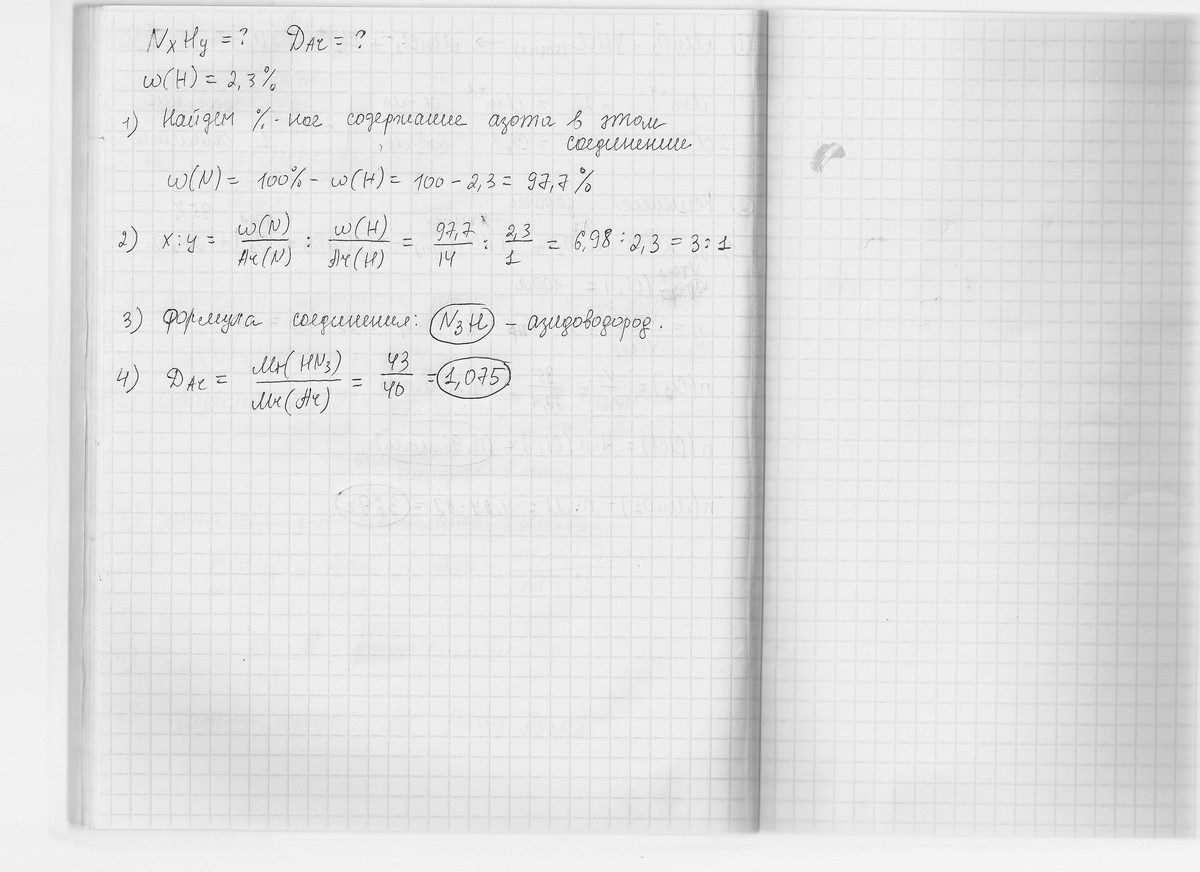 NxHy = ? DAr = ?
ω(H) = 2,3%
1) Найдем %-ное содержание азота в этом
соединении
ω(N) = 100% - ω(H) = 100 - 2,3 = 97,7%
2) x:y = ω(N)/Ar(N) : ω(H)/Ar(H) = 97,7/14 : 2,3/1 = 6,98 : 2,3 = 3:1
3) Формула соединения: N3H - азидоводород.
4) DAr = Mr(HN3)/Mr(Ar) = 43/40 = 1,075